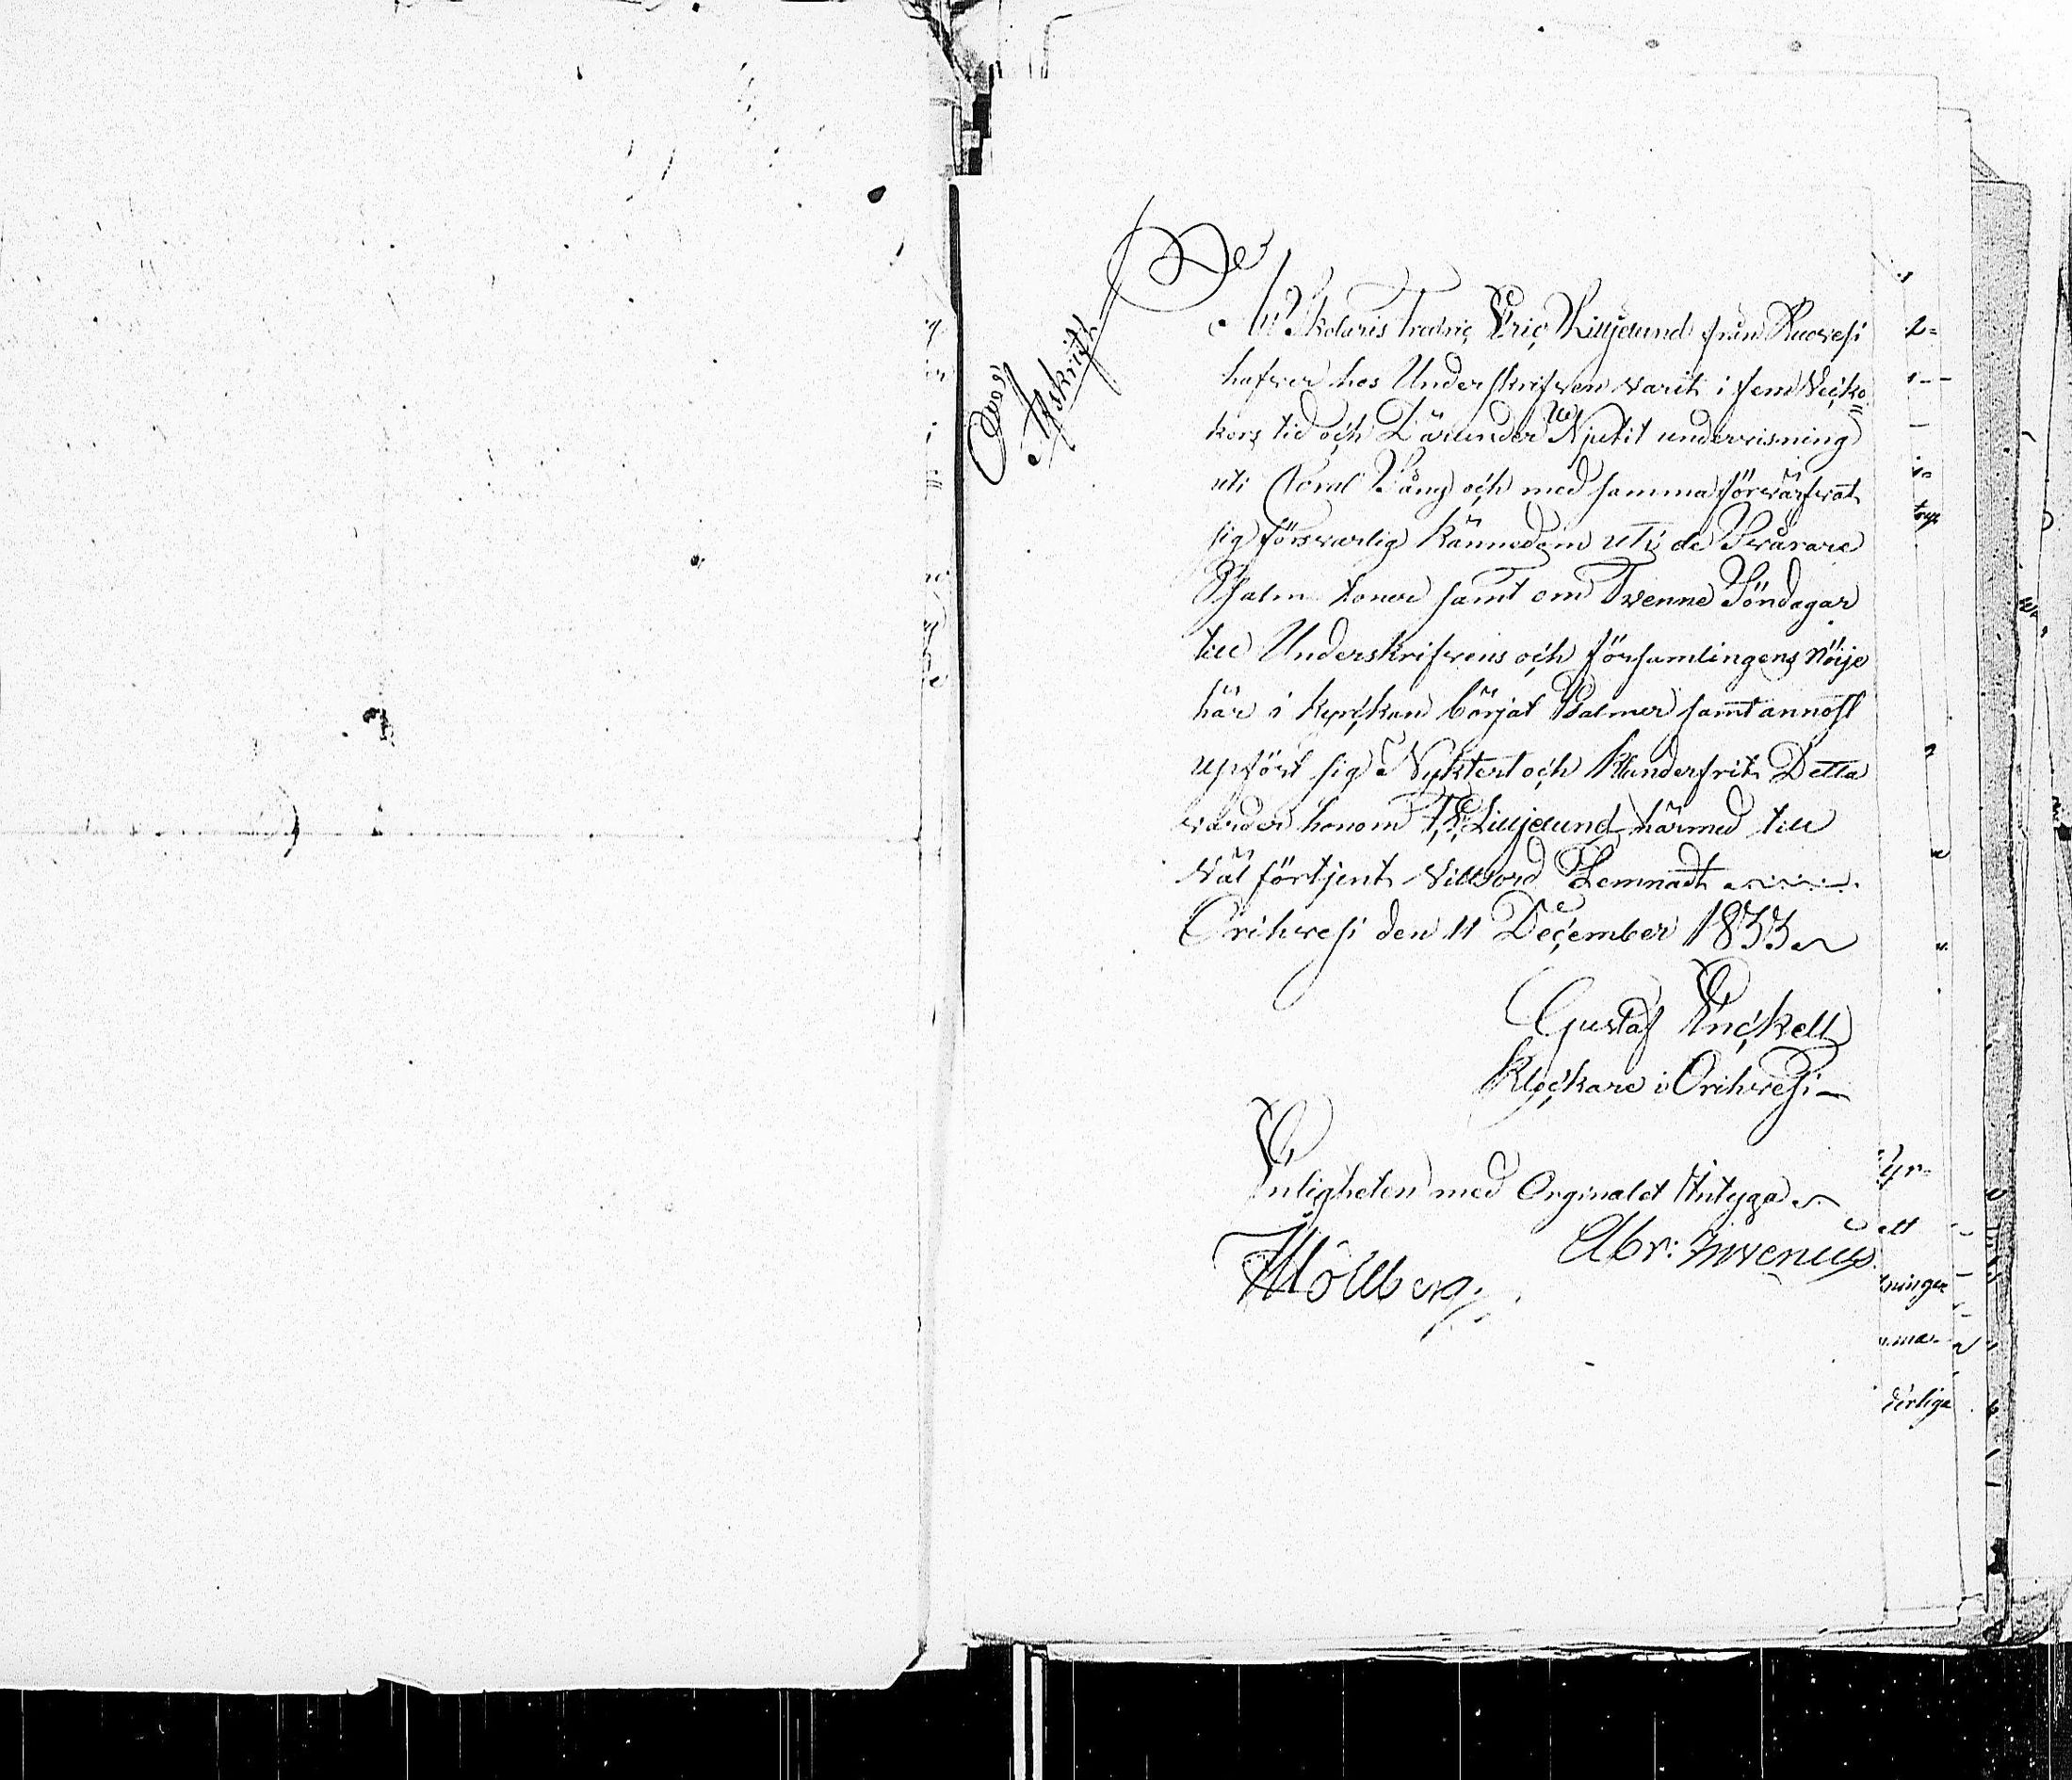 Afskrift
At Skolaris Fredric Eric Lilljelund från Ruovesi
hafver hos Underskrifven varit i fem Vecko=
kors tid och Därunder Njutit underrisning
uti Coral Sång och med samma förvärfvat
sig försvarlig Kännedom uti de Svårare
Psalm toner samt om Tvenne Söndagar
till Underskrifvens och församlingens Nöije
här i kyrckan börjat Psalmer samt annost
upfört sig Nyktert och Klanderfrit Detta
varder honom F. E. Lilljelund härmed till
Väl förtjent Vittsord Lemnadt
Orihvesi den 11 December 1833
Gustaf Enckell
Klockare i Orihvesi
Enligheten med Orginalet Intyga
Abr: Invenius